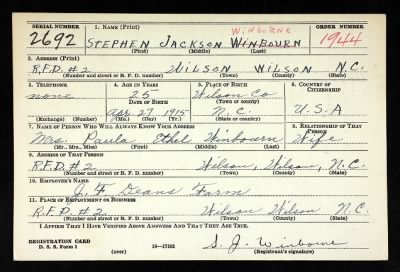 SERIAL NUMBER 1. NAME (Print) ORDER NUMBER
WINBORNE
2692 STEPHEN JACKSON WINBOURN 1944
(First) (Middle) (Last)
2. ADDRESS (Print)
R.F.D. #2 WILSON WILSON N.C.
(Number and street or R. F. D. number) (Town) (County) (State)
3. TELEPHONE 4. AGE IN YEARS 5. PLACE OF BIRTH 6. COUNTRY OF CITIZENSHIP
none 25 Wilson Co
DATE OF BIRTH (Town or county)
Apr 27 1915 N.C. U.S.A
(Exchange) (Number) (Mo.) (Day) (Yr.) (State or country)
7. NAME OF PERSON WHO WILL ALWAYS KNOW YOUR ADDRESS 8. RELATIONSHIP OF THAT PERSON
Mrs. Paula Ethel Winbourn Wife
(Mr., Mrs., Miss) (First) (Middle) (Last)
9. ADDRESS OF THAT PERSON
R.F.D. #2 Wilson, Wilson, N.C.
(Number and street or R. F. D. number) (Town) (County) (State)
10. EMPLOYER'S NAME
Deans Farm
11. PLACE OF EMPLOYMENT OR BUSINESS
R.F.D. #2 Wilson Wilson N.C.
(Number and street or R. F. D. number) (Town) (County) (State)
I AFFIRM THAT I HAVE VERIFIED ABOVE ANSWERS AND THAT THEY ARE TRUE.
REGISTRATION CARD
D. S. S. Form 1 (over) 16—17105 S. J. Winborne
(Registrant's signature)